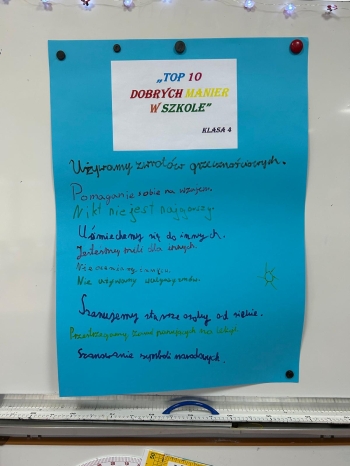 „TOP 10
DOBRYCH MANIER
W SZKOLE”
KLASA 4
Używamy zwrotów grzecznościowych.
Pomaganie sobie na wzajem.
Nikt nie jest najgorszy.
Uśmiechamy się do innych.
Jesteśmy mili dla innych.
Nie używamy wulgaryzmów.
Szanujemy starsze osoby od siebie.
Przestrzegamy zasad panujących na lekcji.
Szanowanie symboli narodowych.